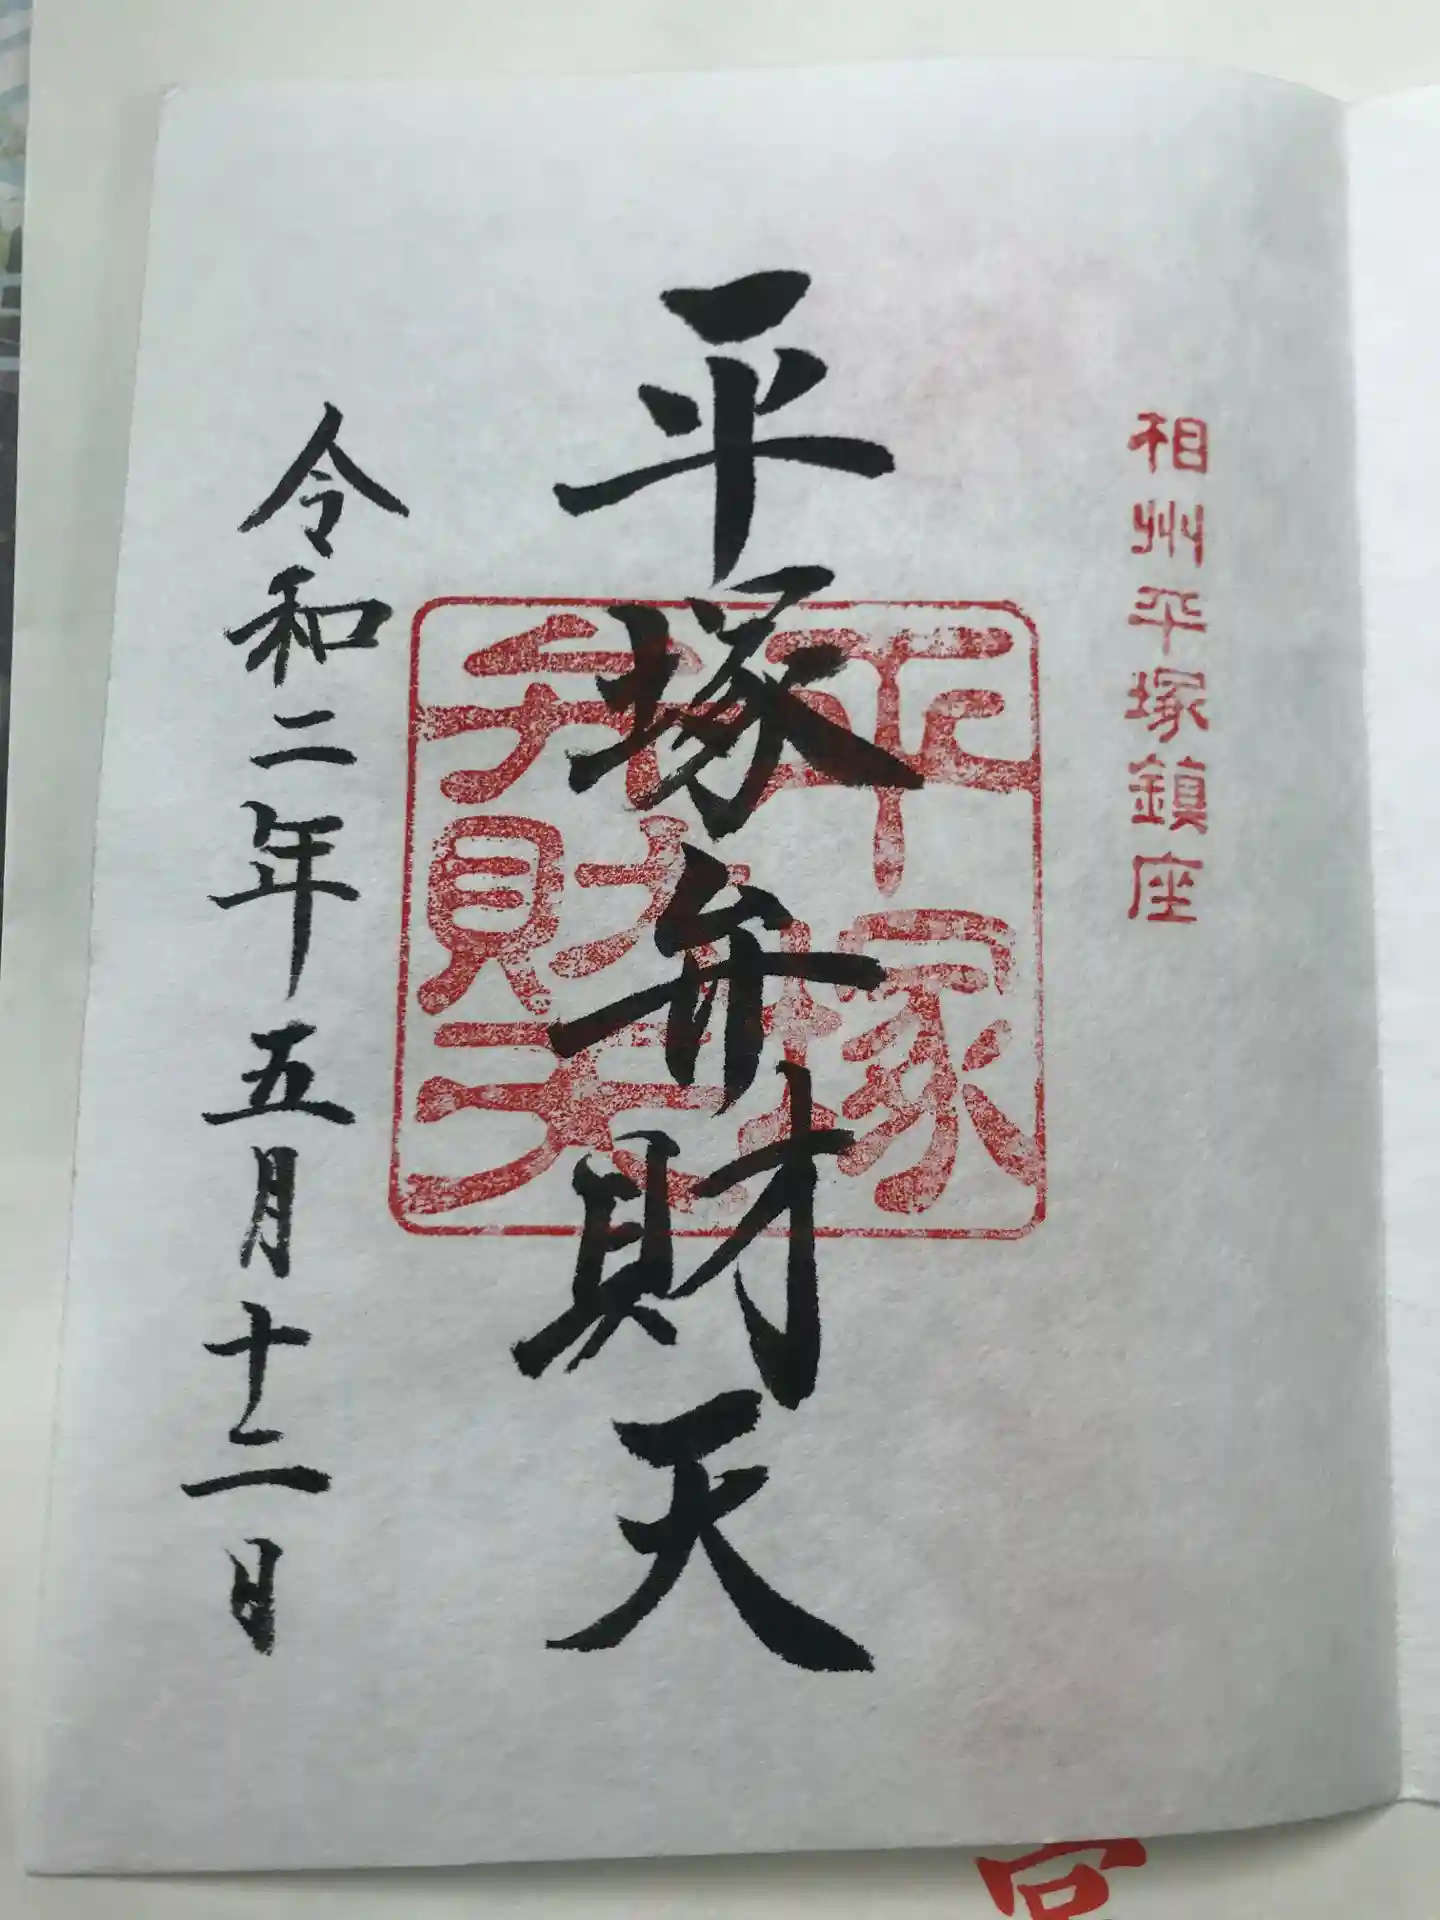 相州平塚鎮座
平塚弁財天
平塚
弁財天
令和二年五月十二日
宮